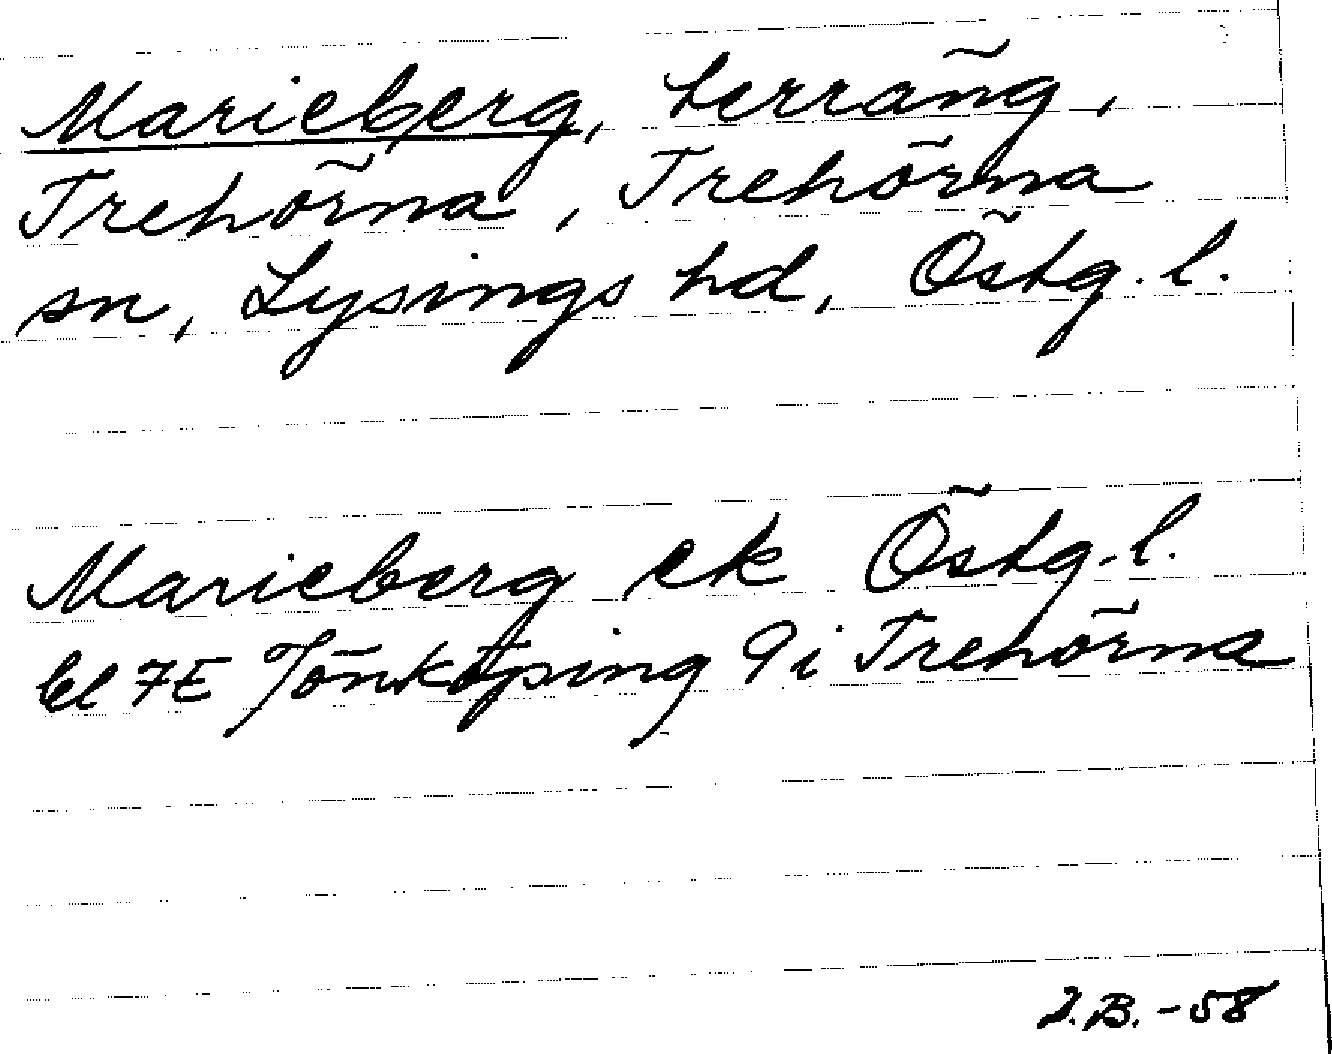 Marieberg, terräng,
Trehörna, Trehörna
sn, Lysings hd, Östg. l.
Marieberg ek Östg. l.
bl 7E Jönköping 9i Trehörna
J.B. -58